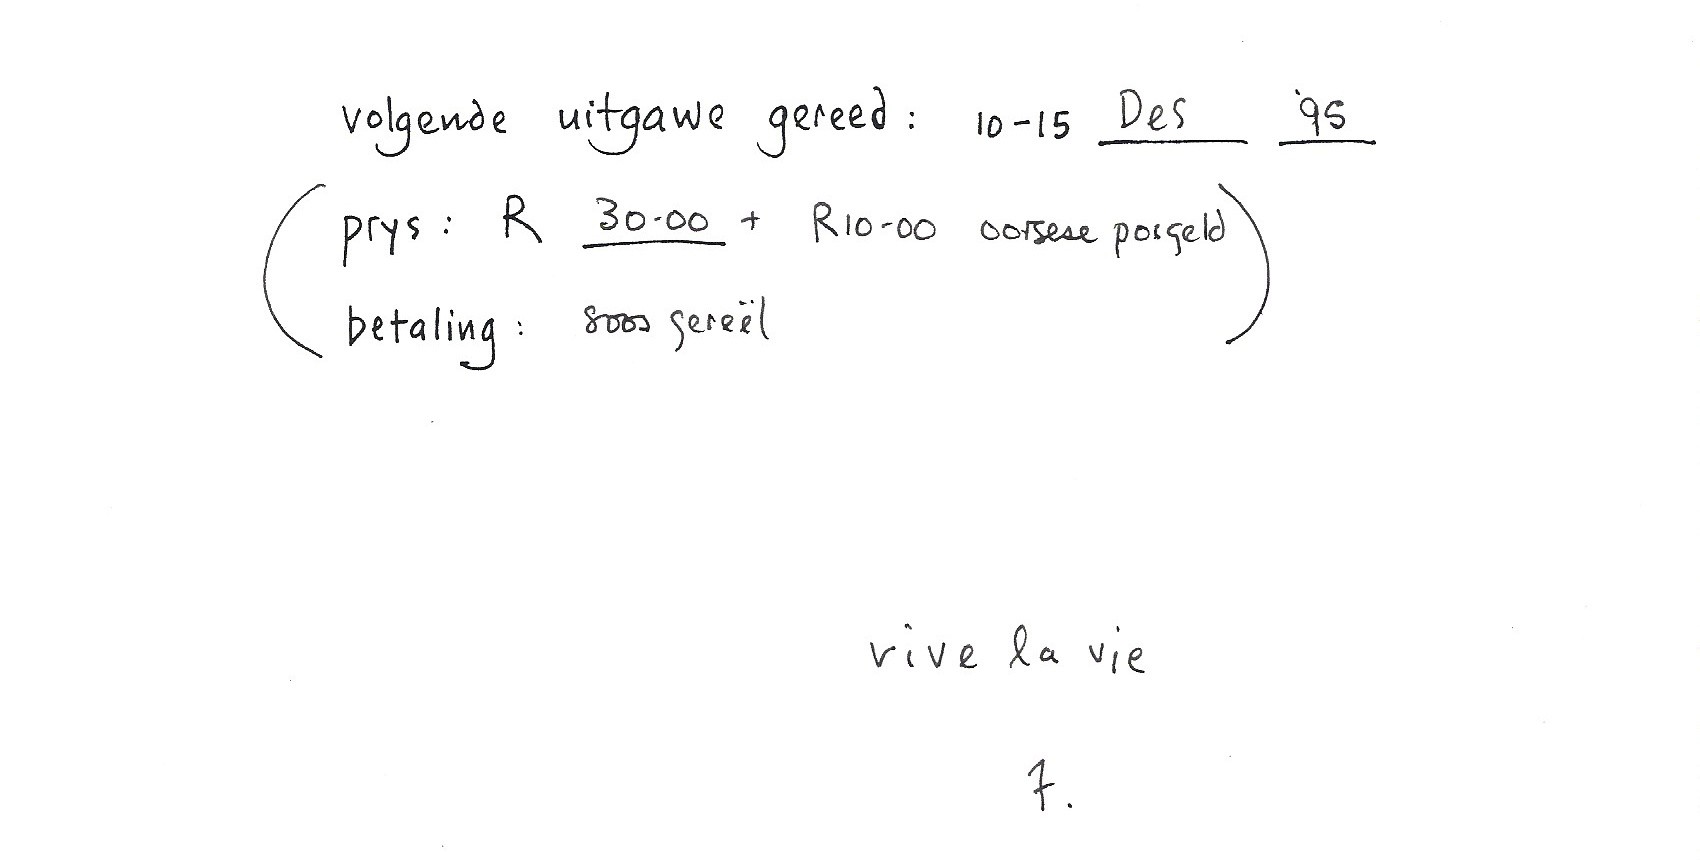 volgende uitgawe gereed: 10-15 Des '95
(prys: R 30-00 + R10-00 oorsese posgeld
betaling: soos gereël)
vive la vie
7.